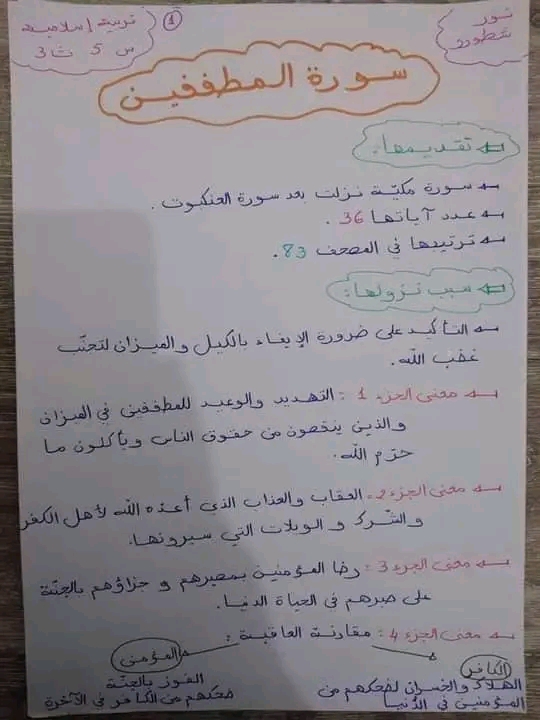 نور
شطورو
①
تربية إسلامية
س 5 ث 3
سورة المطففين
تقديمها:
سورة مكيّة نزلت بعد سورة العنكبوت.
عدد آياتها 36.
ترتيبها في المصحف 83.
سبب نزولها:
التأكيد على ضرورة الإيفاء بالكيل والميزان لتجنّب
غضب الله.
معنى الجزء 1: التهديد والوعيد للمطففين في الميزان
والذين ينقصون من حقوق الناس ويأكلون ما
حرّم الله.
معنى الجزء 2: العقاب والعذاب الذي أعدّه الله لأهل الكفر
والشّرك والويلات التي سيرونها.
معنى الجزء 3: رضا المؤمنين بمصيرهم وجزاؤهم بالجنّة
على صبرهم في الحياة الدنيا.
معنى الجزء 4: مقارنة العاقبة:
الكافر
الهلاك والخسران لضحكهم من
المؤمنين في الدّنيا
المؤمن
الفوز بالجنّة
ضحكهم من الكافر في الآخرة